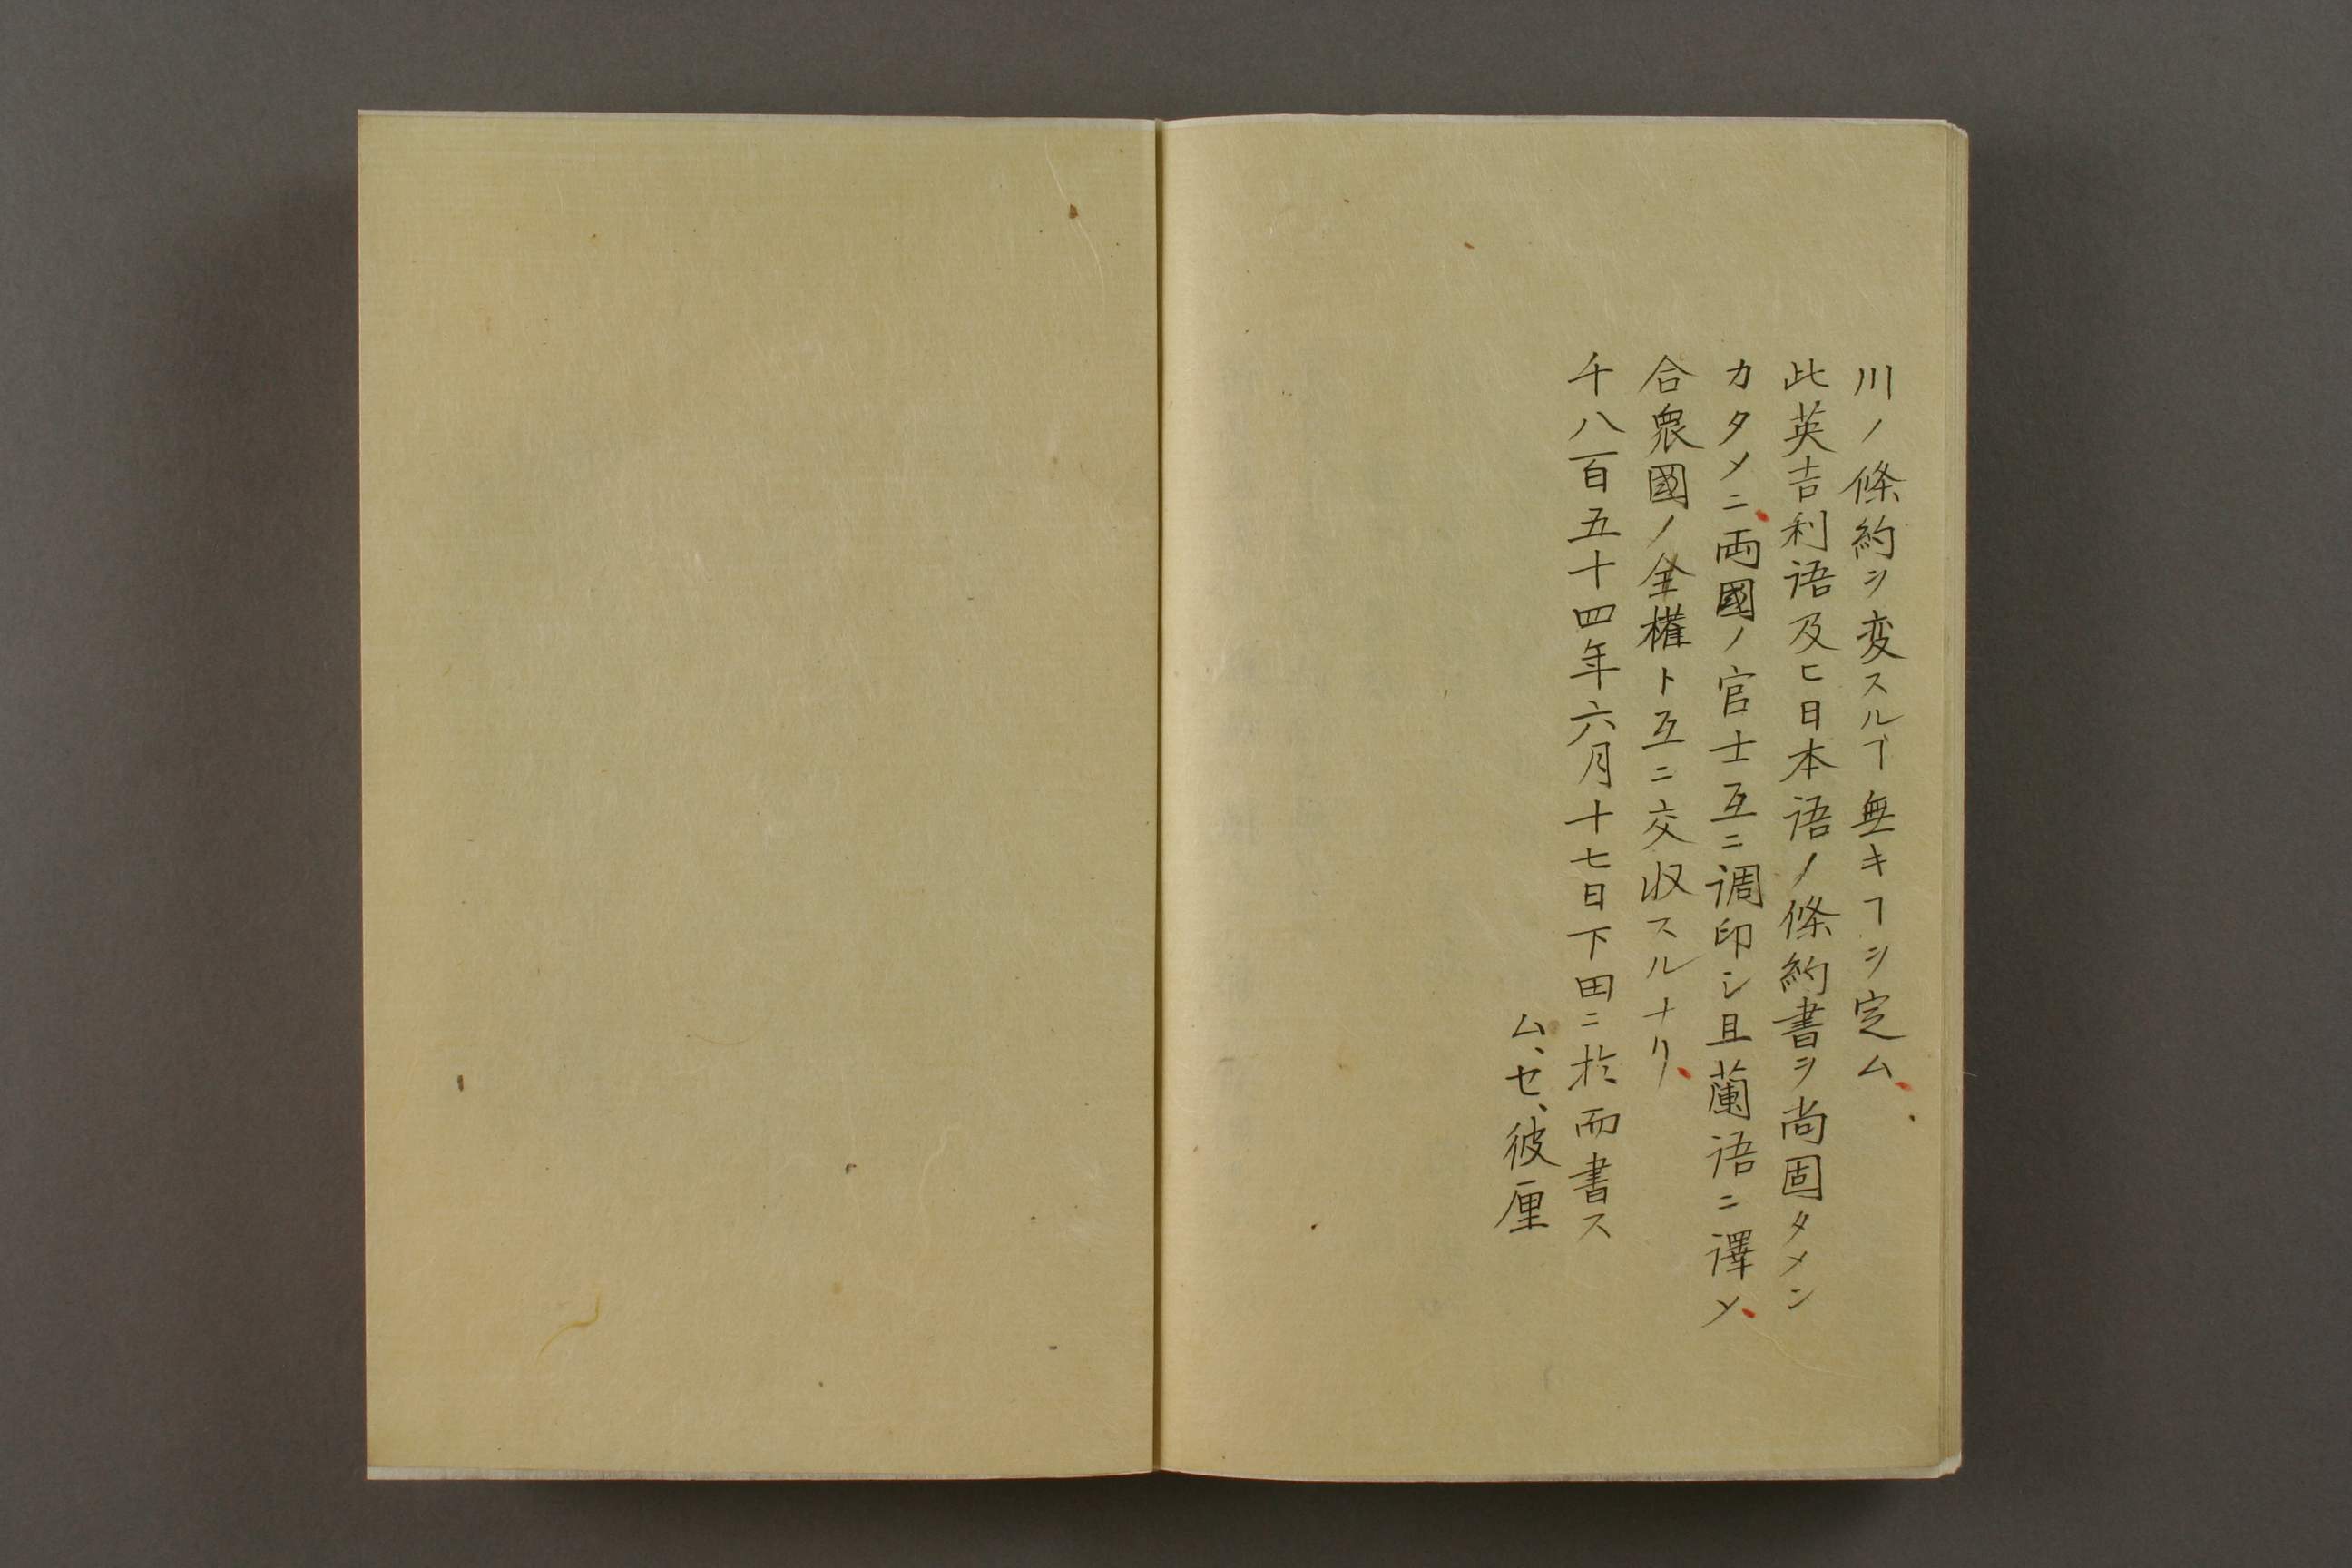 川ノ條約ヲ変スルヿ無キヿヲ定ム、
此英吉利語及ヒ日本語ノ條約書ヲ尚固タメン
カタメニ、両國ノ官士互ニ調印シ且蘭語ニ譯〆、
合衆國ノ全權ト互ニ交収スルナリ、
千八百五十四年六月十七日下田ニ於而書ス
ム、セ、彼厘